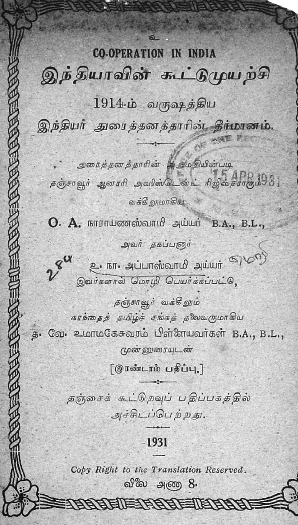 உ
CO-OPERATION IN INDIA
இந்தியாவின் கூட்டுமுயற்சி
1914-ம் வருஷத்திய
இந்தியர் துரைத்தனத்தாரின் தீர்மானம்.
அரைத்தனத்தாரின்
தஞ்சாவூர் ஆனரரி
15 APR 1931
வக்கீலுமாகிய
O. A. நாராயணஸ்வாமி அய்யர் B.A., B.L.,
அவர் தகப்பனார்
284
உ. நா. அப்பாஸ்வாமி அய்யர்
இவர்களால் மொழி பெயர்க்கப்பட்டு,
தஞ்சாவூர் வக்கீலும்
கரந்தைத் தமிழ்ச் சங்கத் தலைவருமாகிய
த. வே. உமாமகேசுவரம் பிள்ளையவர்கள் B.A., B.L.,
முன்னுரையுடன்
[மூன்றாம் பதிப்பு.]
தஞ்சைக் கூட்டுறவுப் பதிப்பகத்தில்
அச்சிடப்பெற்றது.
1931
Copy Right to the Translation Reserved.
விலை அணா 8.